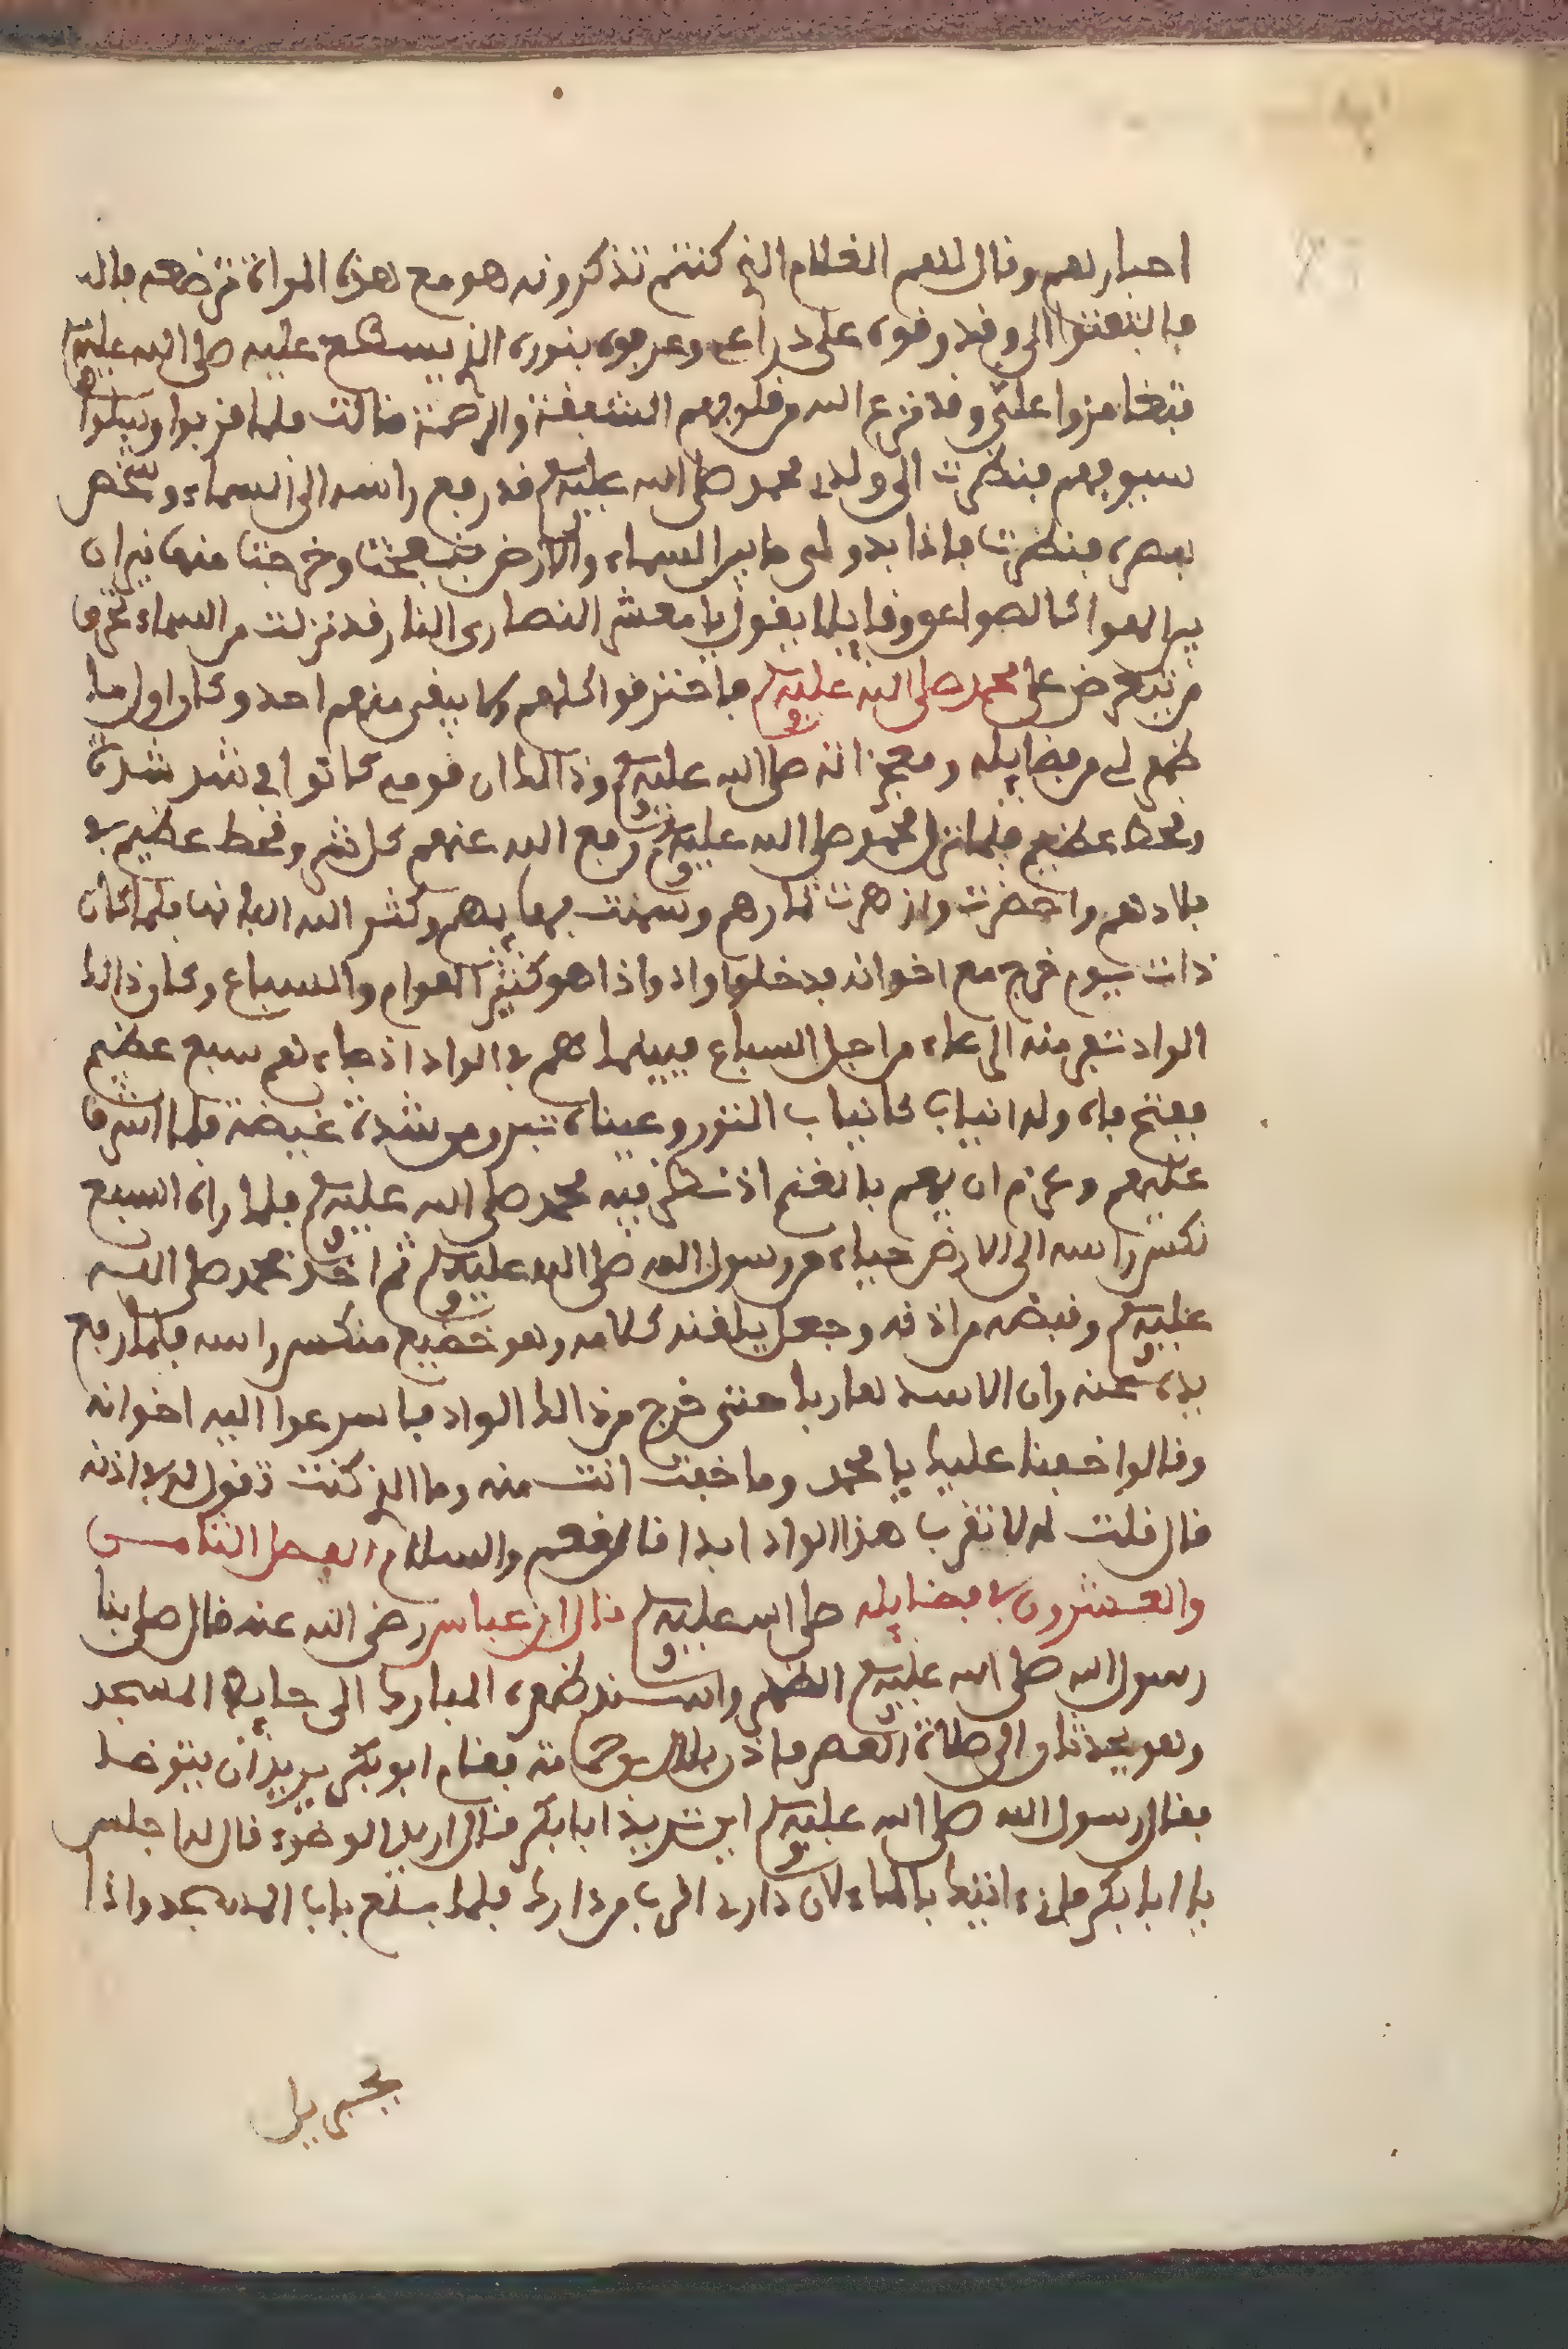 احبارهم وقال لهم الغلام الذي كنتم تذكرونه هو مع هذه المراة ترضعه قال
فالتفتوا الي وقد رقوه على ذراعي وعرفوه بنوره الذي يسطع عليه صلى الله عليه وسلم
فتغامزوا علي وقد نزع الله من قلوبهم الشفقة والرحمة قالت فلما قربوا وسلوا
سيوفهم فنظرت الى ولدي محمد صلى الله عليه وسلم قد رفع راسه الى السماء وشخص
بصره فنظرت فاذا بدو لي ما بين السماء والارض فتحت وخرجت منها نيران
من الهوا كالصواعق وقايلا يقول يا معشر النصارى النار قد نزلت من السماء تحرق
من تعرض على محمد صلى الله عليه وسلم فاحترقوا كلهم ولا بيقى منهم احد وكان اول ما
ظهر لي من فضايله ومعجزاته صلى الله عليه وسلم وذالك ان قومي كانوا في شد شدة
وقحط عظيم فلما نزل محمد صلى الله عليه وسلم رفع الله عنهم كل شر وقحط عظيم في
بلادهم واخضرت وازهرت ثمارهم وسمنت بهايمهم وكثر الله البانها فلما كان
ذات يوم خرج مع اخوانه فدخلوا واد واذا هو كثير الهوام والسباع وكان ذالك
الواد تنفر منه الرعاء من اجل السباع فبينما هم في الواد اذ جاءهم سبع عظيم
ففتح فاه وله انياب كانياب النور وعيناه تبرو من شدة غيضه فلما اشرف
عليهم وعزم ان يهم بالغنم اذ نظر فيه محمد صلى الله عليه وسلم فلما راه السبع
نكس راسه الى الارض حياء من رسول الله صلى الله عليه وسلم ثم اخذ محمد صلى الله
عليه وسلم وقبضه من اذنه وجعل يلقنه كلامه وهو خضيع منكس راسه فلما رفع
يده عنه ران الاسد هاربا حتى خرج من ذالك الواد فاسرعوا اليه اخوانه
وقالوا خفنا عليك يا محمد وما خفت انت منه وما الذي كنت تقول له في اذنه
قال قلت له لا تقرب هذا الواد ابدا قال نعم والسلام الفصل الثامن
والعشرون في فضايله صلى الله عليه وسلم قال ابن عباس رضي الله عنه قال صلى بنا
رسول الله صلى الله عليه وسلم الظهر واسند ظهره المبارك الى حايط المسجد
وهو يحدثنا الى صلاة العصر فاذن بلال بن حمامة فقام ابو بكر يريد ان يتوضا
فقال رسول الله صلى الله عليه وسلم اين تريد ابا بكر قال اريد الوضوء قال له اجلس
يا ابا بكر فانه اتيك بالماء لان داري اقرب من دارك فلما بلغ باب المسجد واذا
بجبريل